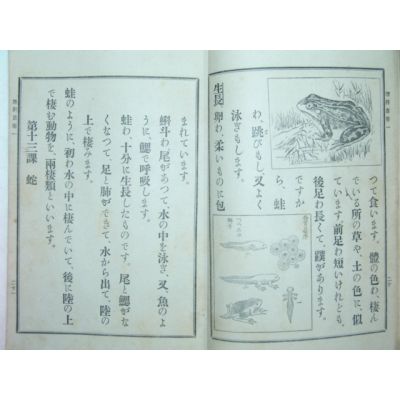 つて食います。體の色わ、棲ん
でいる所の草や、土の色に、似
ています。前足わ短いけれども、
後足わ長くて、蹼があります。
ですか
ら、蛙
わ、跳びもし、又よく
泳ぎもします。
生長 卵わ、柔いものに包
まれています。
蝌斗わ尾があつて、水の中を泳ぎ、又、魚のよ
うに、鰓で呼吸します。
蛙わ、十分に生長したものです。尾と鰓がな
くなつて、足と肺ができて、水から出て、陸の
上で棲みます。
蛙のように、初わ水の中に棲んでいて、後に陸の上
で棲む動物を、兩棲類といいます。
第十三課 蛇